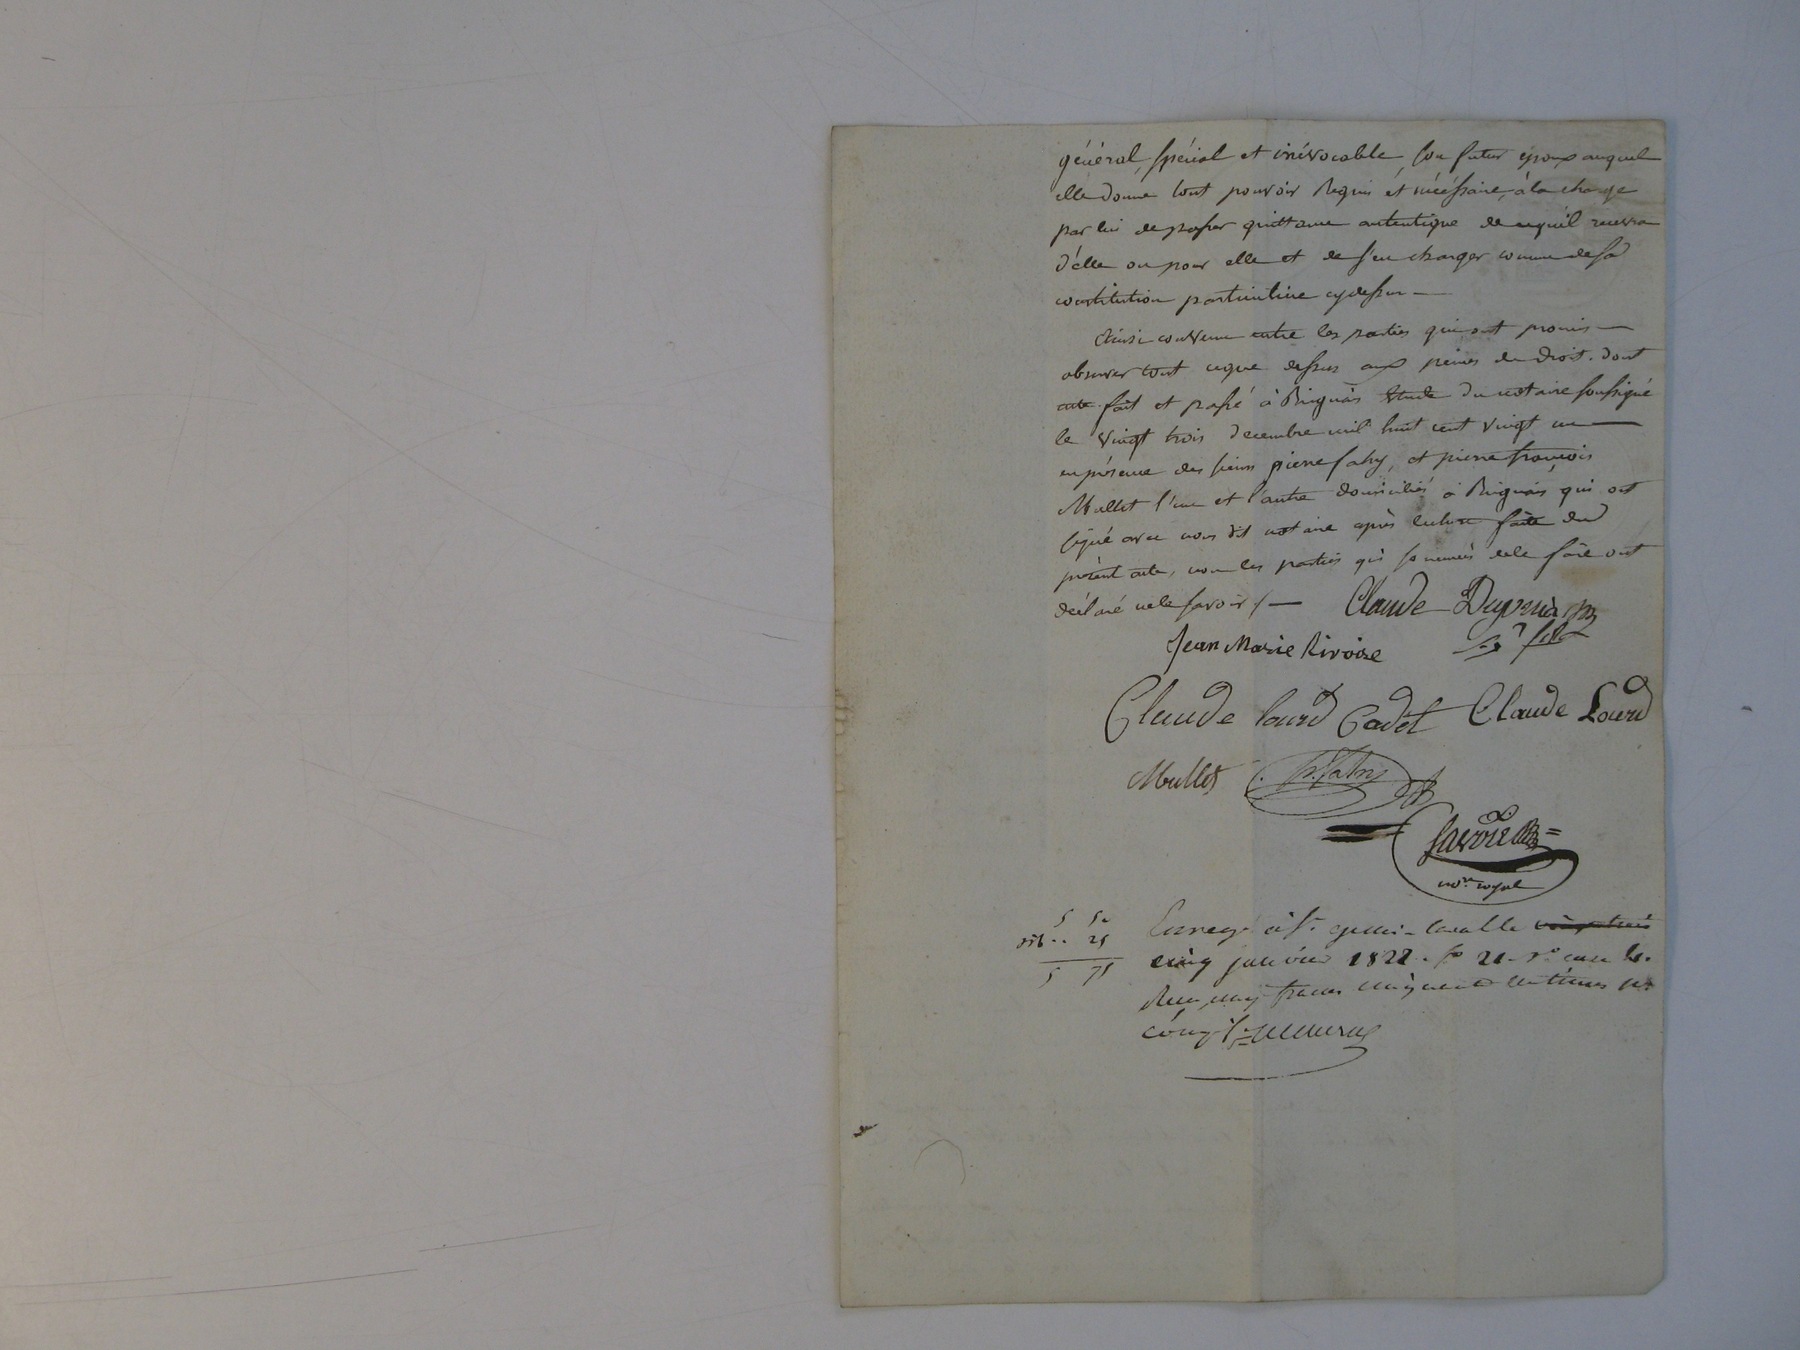 général, spécial et irrévocable, son futur époux auquel
elle donne tout pouvoir Requis et nécéssaire, à la charge
par lui de passer quittance autentique de cequ'il recevra
d'elle ou pour elle et de s'en charger comme de sa
constitution particulière cydessus —
Ainsi convenu entre les parties qui ont promis —
observer tout ceque dessus aux peines de droit. dont
acte. fait et passé à Brignais Etude du notaire soussigné
le vingt trois decembre mil huit cent vingt un —
en présence des sieurs pierre fahy, et pierre françois
Mullet l'un et l'autre domiciliés à Brignais, qui ont
signé avec nous dit notaire après lecture faite du
présent acte, non les parties qui sommées de le faire ont
déclaré ne le savoir /— Claude Dupuis
fils
Jean Marie Rivoire
Claude Lourd Cadet Claude Lourd
Mullet P. fahy
nore. royal
5 50
dix.. 25
5 75
Enregé. à St. genis-Laval le
cinq janvier 1822. fo 21. ro. case
Reçu cinq francs cinquante centimes pr.